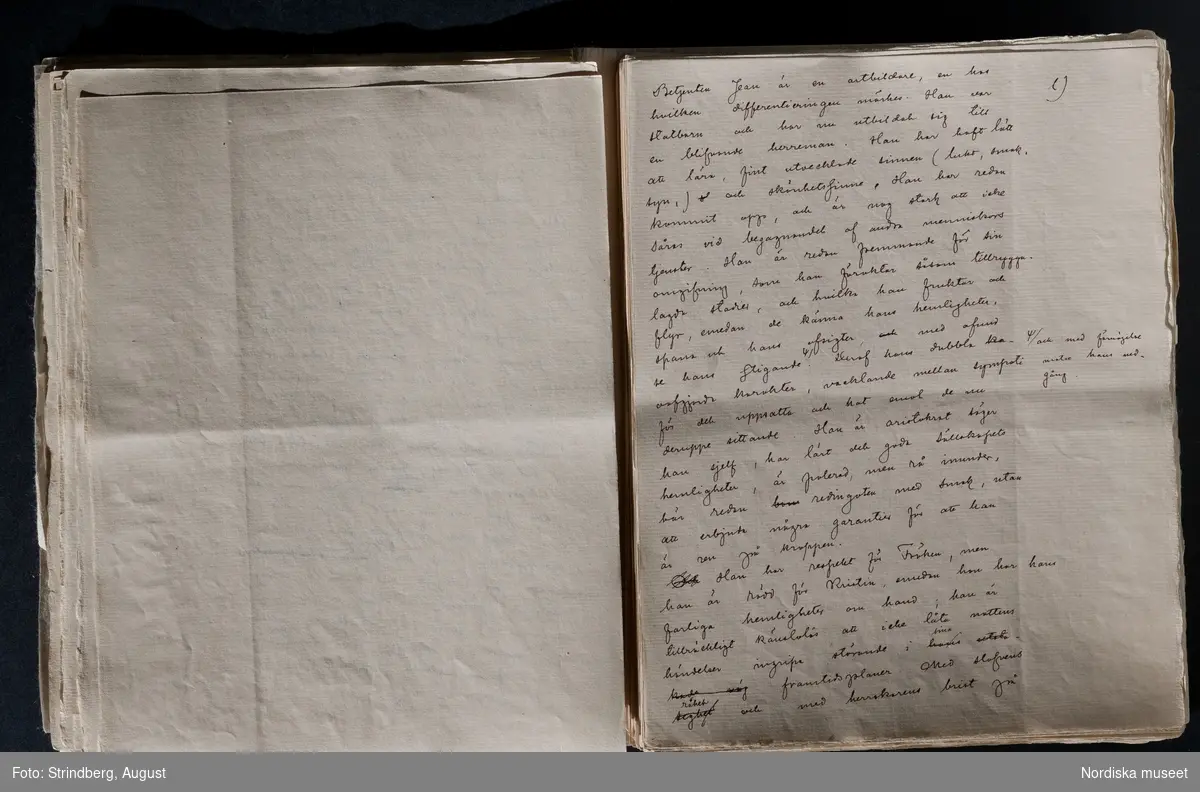 l)
Betjenten Jean är en artbildare, en hos
hvilken differentieringen märkes. Han var
statbarn och har nu utbildat sig till
en blifvande herreman. Han har haft lätt
att lära, fint utvecklade sinnen (lukt, smak,
syn,) och skönhetssinne. Han har redan
kommit opp, och är nog stark att icke
såras vid begagnandet af andra menniskors
tjenster. Han är redan fremmande för sin
omgifning, som han föraktar såsom tillrygga-
lagda stadier, och hvilka han fruktar och
flyr, emedan de känna hans hemligheter,
spana ut hans afsigter, och med afund
se hans stigande. Deraf hans dubbla ka-
oafgjorda karakter, vacklande mellan sympati
för det uppsatta och hat emot de nu
deruppe sittande. Han är aristokrat säger
han sjelf, har lärt den goda sällskapets
hemligheter, är polerad, men rå inunder,
bär redan redingoten med smak, utan
att erbjuda några garantier för att han
är ren på kroppen.
Han har respekt för Fröken, men
han är rädd för Kristin, emedan hon har hans
farliga hemligheter om hand; han är
tillräckligt känslolös att icke låta nattens
händelser ingripa störande i hans
sina
framtidsplaner. Med slafvens
råhet
och med herrskarens brist på
och med förnöjelse
motse hans ned-
gång.
Foto: Strindberg, August
Nordiska museet